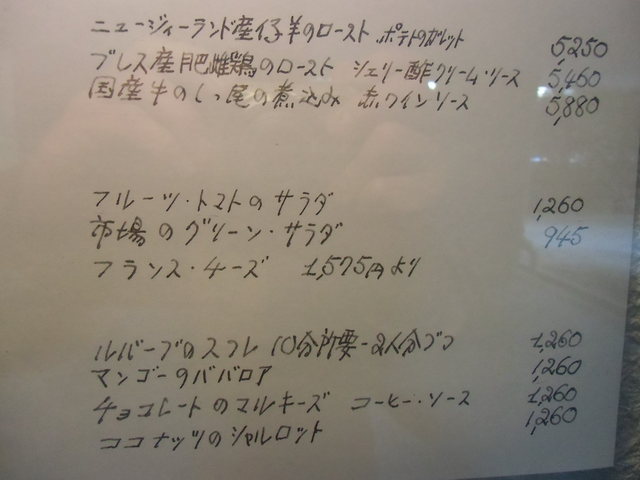 ニュージィーランド産仔羊のロースト ポテトのガレット 5,250
ブレス産肥雌鶏のロースト シェリー酢クリーム・ソース 5,460
国産牛のしっ尾の煮込み 赤ワインソース 5,880
フルーツ・トマトのサラダ 1,260
市場のグリーン・サラダ 945
フランス・チーズ 1,575円より
ルバーブのスフレ 10分所要-2人分 1,260
マンゴーのババロア 1,260
チョコレートのマルキーズ コーヒー・ソース 1,260
ココナッツのシャルロット 1,260